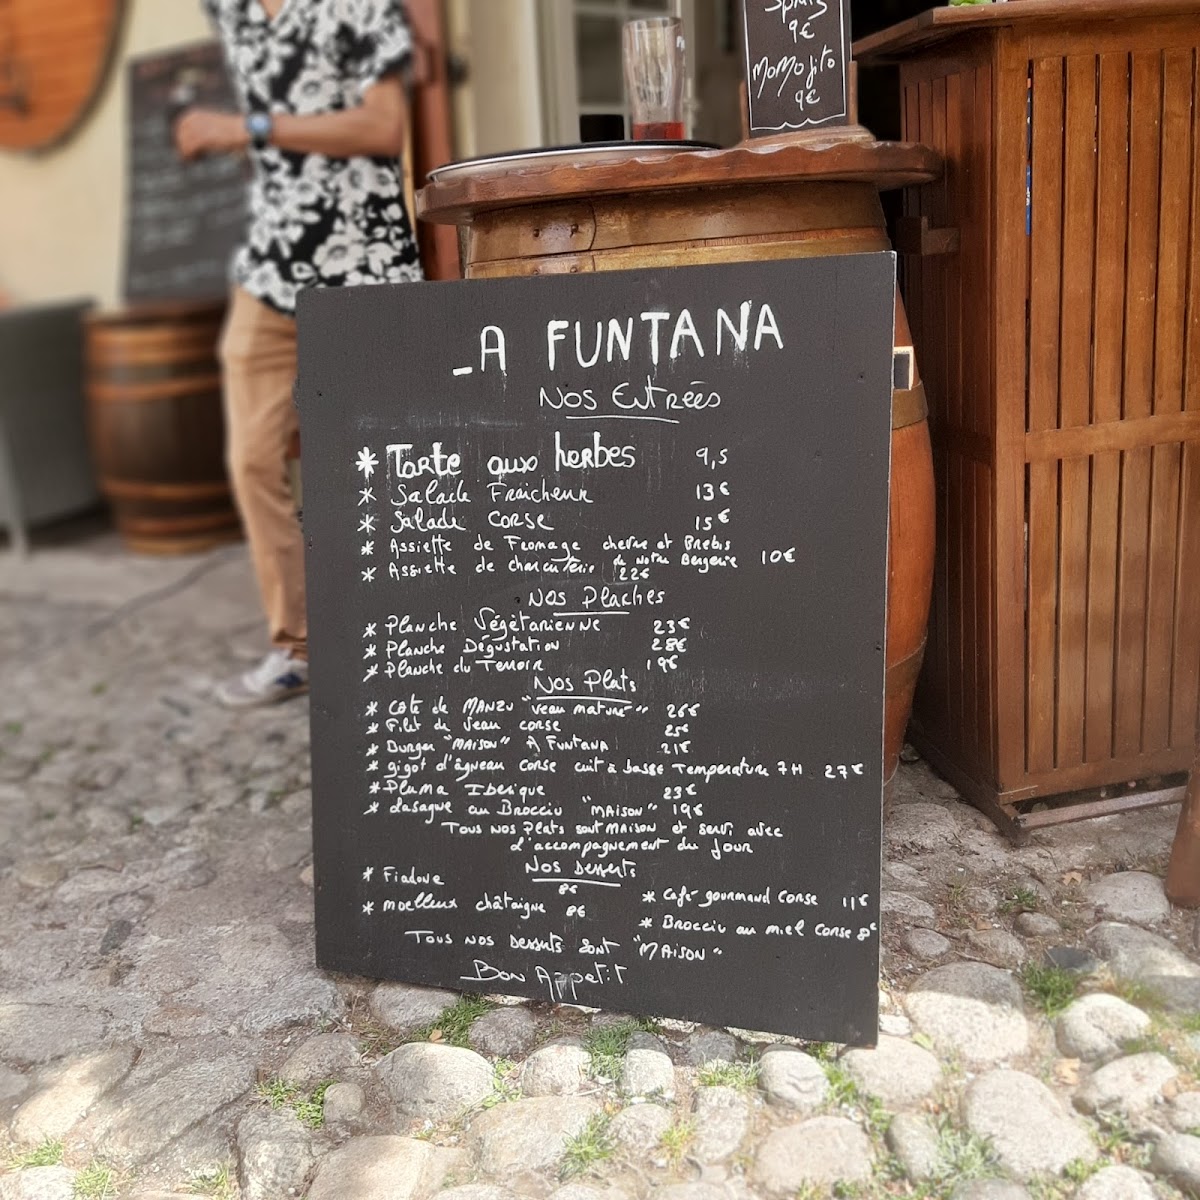 Spritz
9€
MoMojito
9€
_A FUNTANA
Nos Entrées
* Tarte aux herbes 9,5
* Salade Fraicheur 13€
* Salade Corse 15€
* Assiette de Fromage chevre et Brebis
de Notre Bergerie 10€
* Assiette de charcuterie 22€
Nos Planches
* Planche Végétarienne 23€
* Planche Dégustation 28€
* Planche du Terroir 19€
Nos Plats
* Côte de MANZU "veau mature" 26€
* Filet de Veau corse 25€
* Burger "MAISON" A Funtana 21€
* gigot d'âgneau Corse cuit à basse Temperature 7H 27€
* Pluma Iberique 23€
* Lasagne au Brocciu "MAISON" 19€
Tous nos Plats sont MAISON et servi avec
l'accompagnement du Jour
Nos Desserts
* Fiadone 8€
* moelleux châtaigne 8€
* Café gourmand Corse 11€
* Brocciu au miel Corse 8€
Tous nos Desserts sont "MAISON"
Bon Appetit